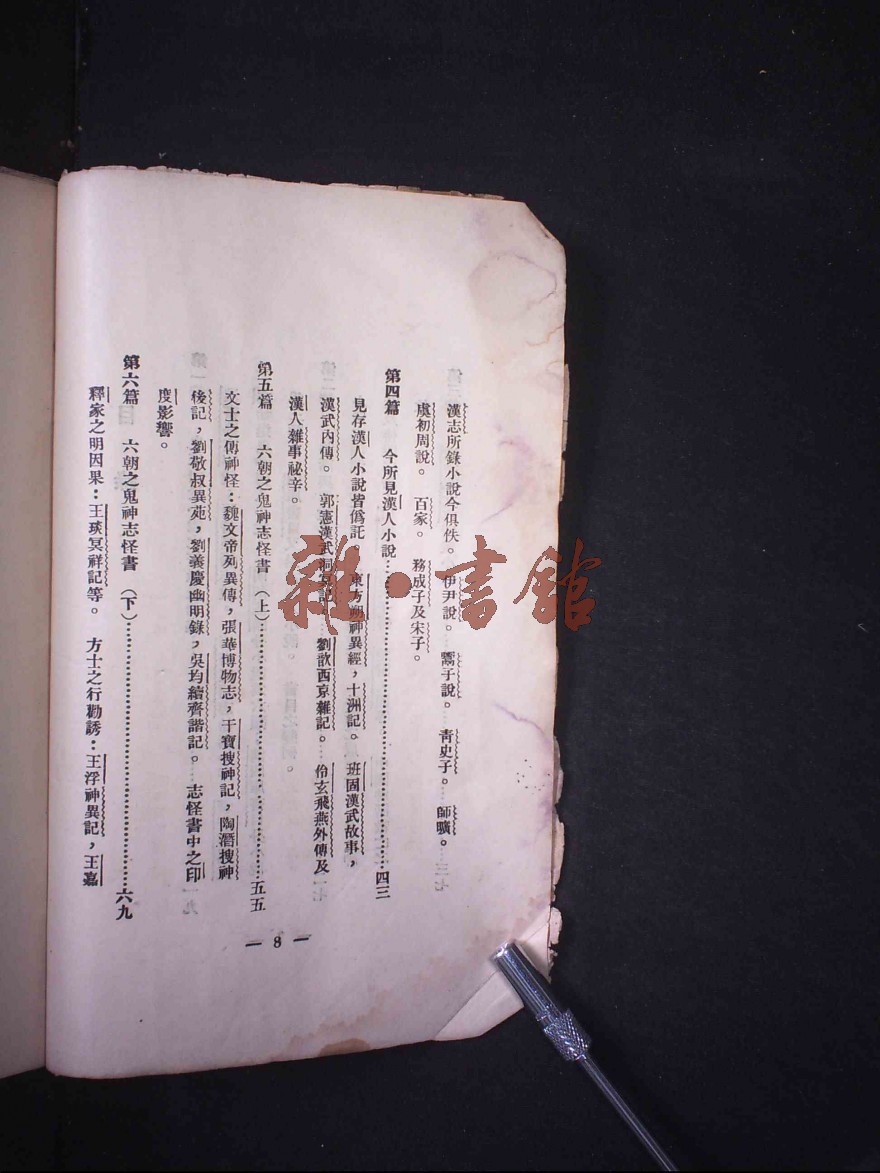 漢志所錄小說今俱佚。伊尹說。鬻子說。青史子。師曠。
虞初周說。百家。務成子及宋子。
第四篇　今所見漢人小說……四三
見存漢人小說皆僞託。東方朔神異經，十洲記。班固漢武故事，
漢武內傳。郭憲漢武洞冥記。劉歆西京雜記。伶玄飛燕外傳及
漢人雜事祕辛。
第五篇　六朝之鬼神志怪書（上）……五五
文士之傳神怪：魏文帝列異傳，張華博物志，干寶搜神記，陶潛搜神
後記，劉敬叔異苑，劉義慶幽明錄，吳均續齊諧記。志怪書中之印
度影響。
第六篇　六朝之鬼神志怪書（下）……六九
釋家之明因果：王琰冥祥記等。方士之行勸誘：王浮神異記，王嘉
— 8 —
雜·書館